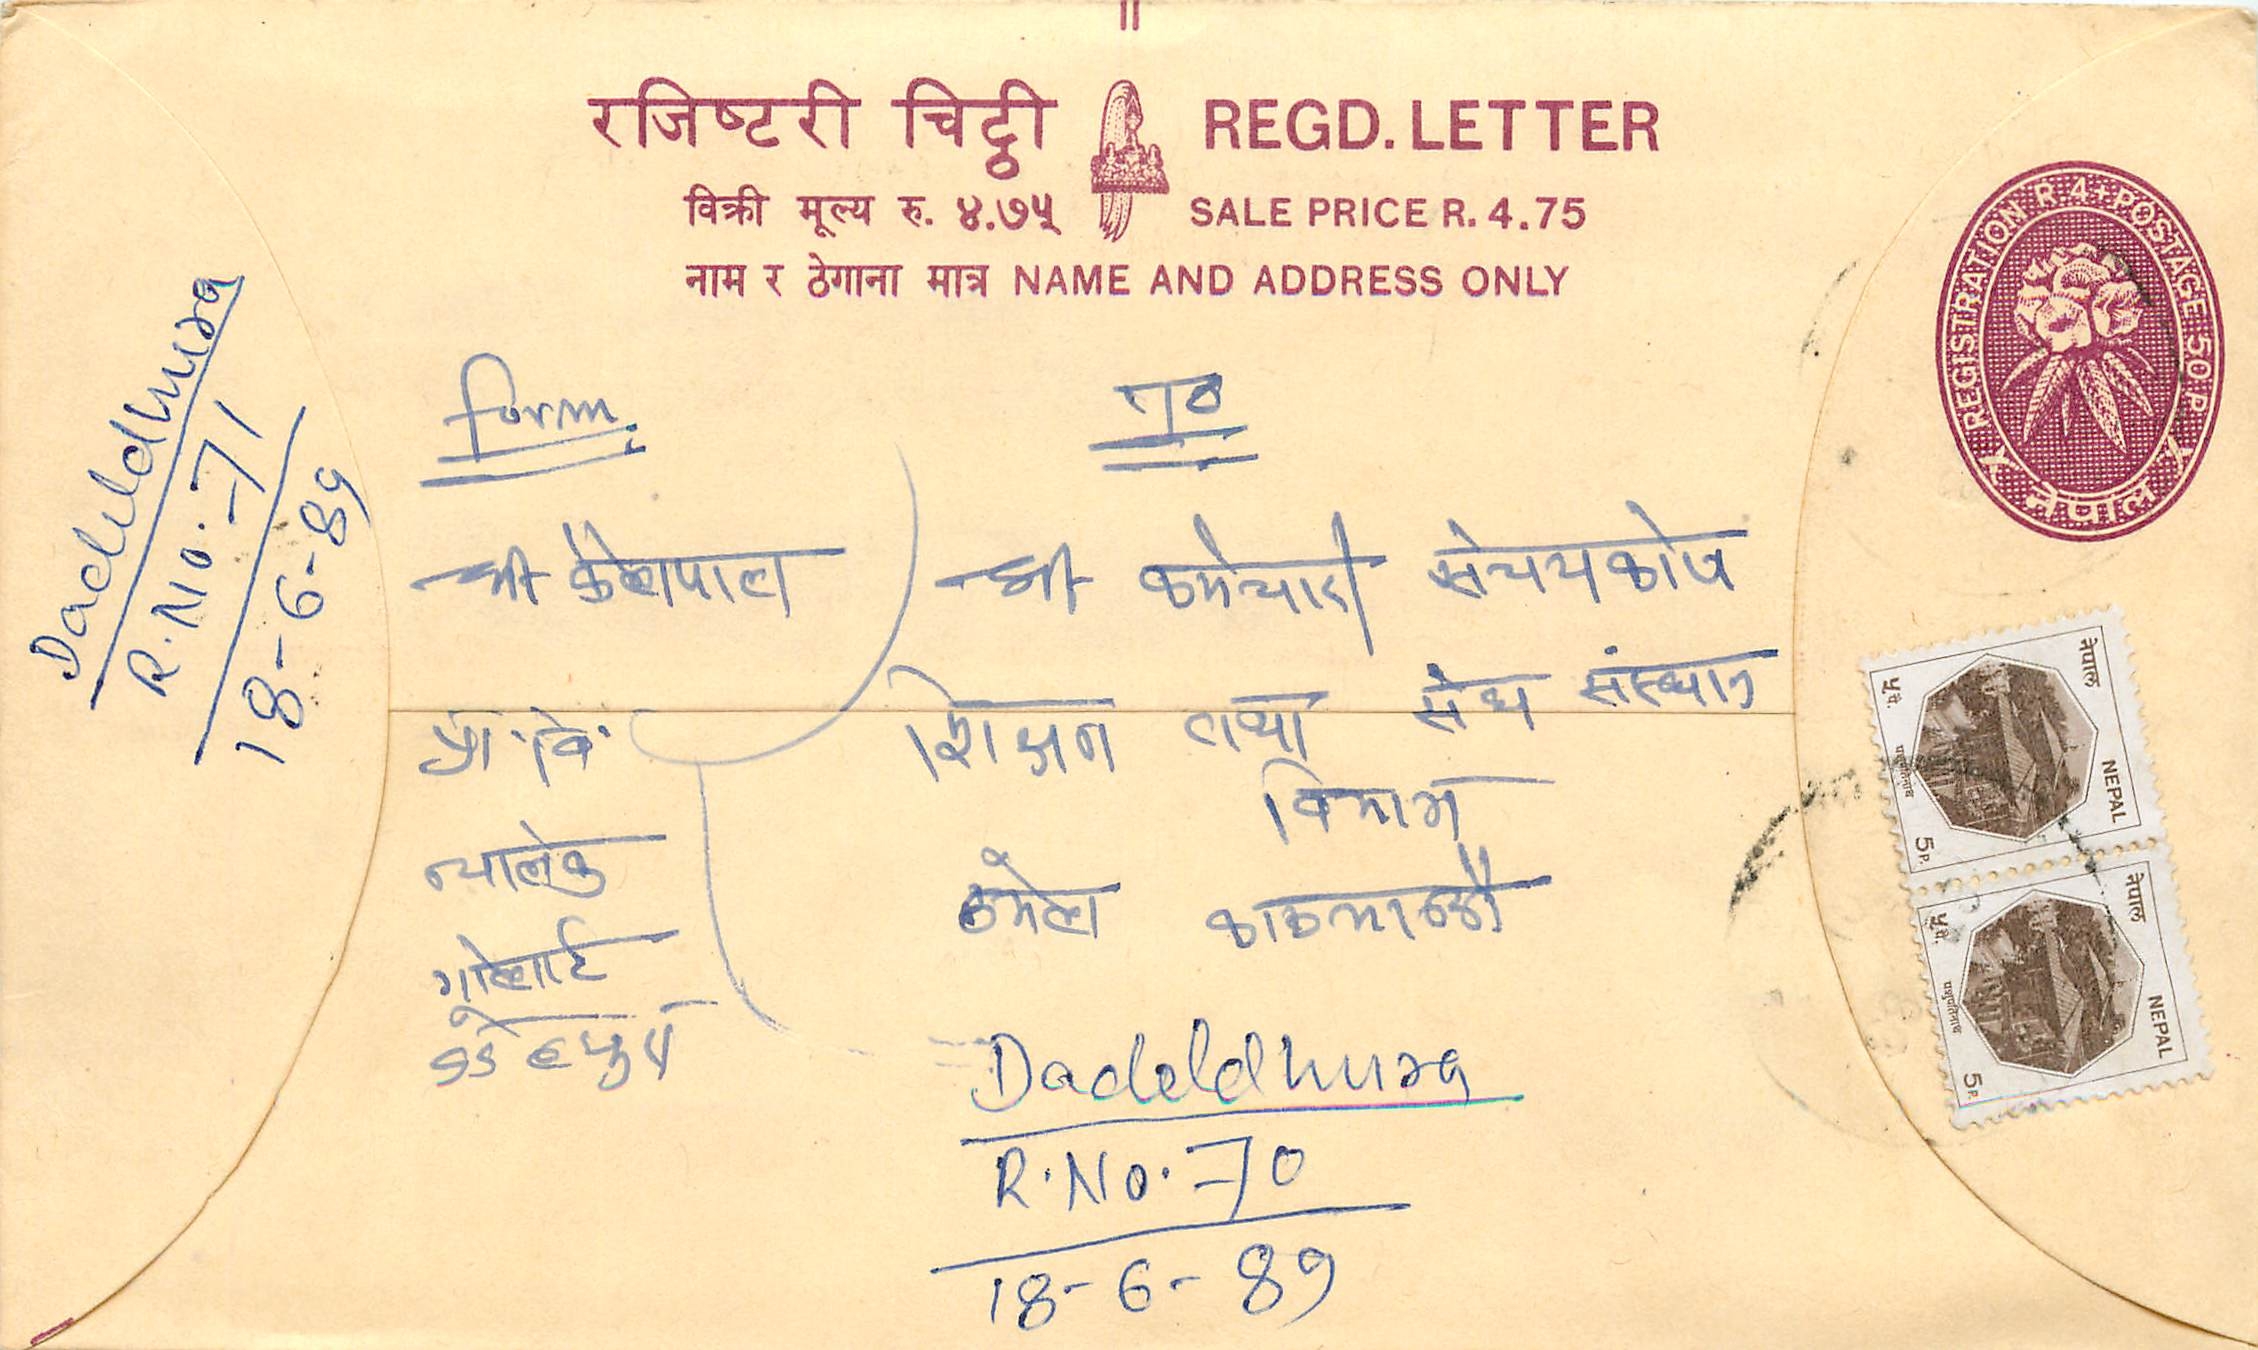 रजिष्टरी चिट्ठी REGD. LETTER
विक्री मूल्य रु. ४.७५ SALE PRICE R. 4.75
नाम र ठेगाना मात्र NAME AND ADDRESS ONLY
REGISTRATION R.4+POSTAGE 50 P
नेपाल
Dadeldhura
R.No. 71
18-6-89
form
श्री
प्रा. वि.
To
श्री कर्मचारी संचयकोष
शिक्षण तथा संघ संस्थान
विभाग
काठमाण्डौ
Dadeldhura
R.No. 70
18-6-89
नेपाल
५ पै.
पशुपतिनाथ
NEPAL
5 P.
नेपाल
५ पै.
पशुपतिनाथ
NEPAL
5 P.